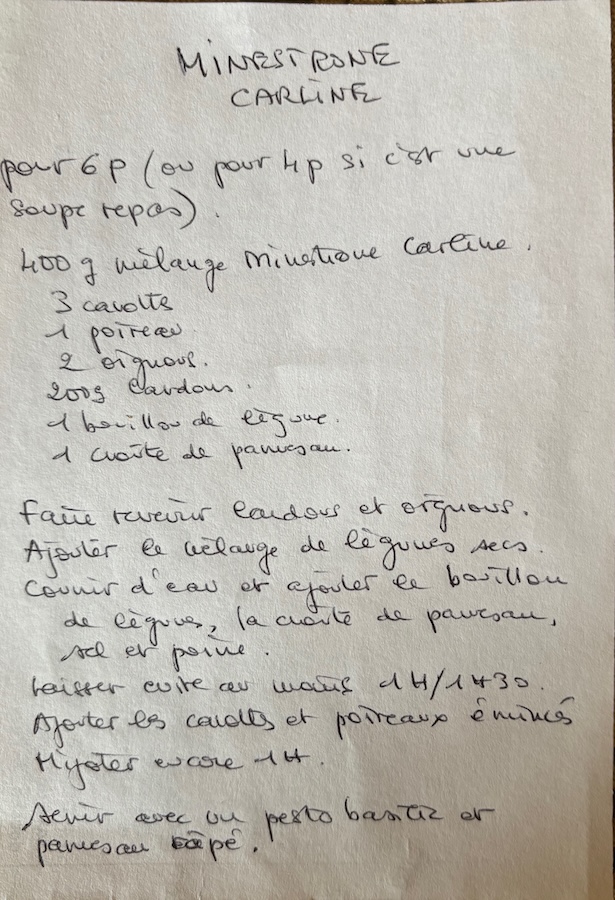 MINESTRONE
CARLINE
pour 6 p (ou pour 4 p si c'est une
soupe repas).
400 g mélange minestrone Carline.
3 carottes
1 poireau
2 oignons.
200g lardons.
1 bouillon de légume.
1 croûte de parmesan.
Faire revenir lardons et oignons.
Ajouter le mélange de légumes secs.
Couvrir d'eau et ajouter le bouillon
de légumes, la croûte de parmesan,
sel et poivre.
Laisser cuire au moins 1H/1H30.
Ajouter les carottes et poireaux émincés
Mijoter encore 1H.
Servir avec un pesto basilic et
parmesan râpé.